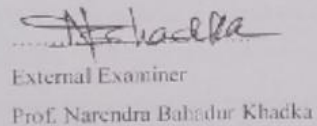 External Examiner
Prof. Narendra Bahadur Khadka